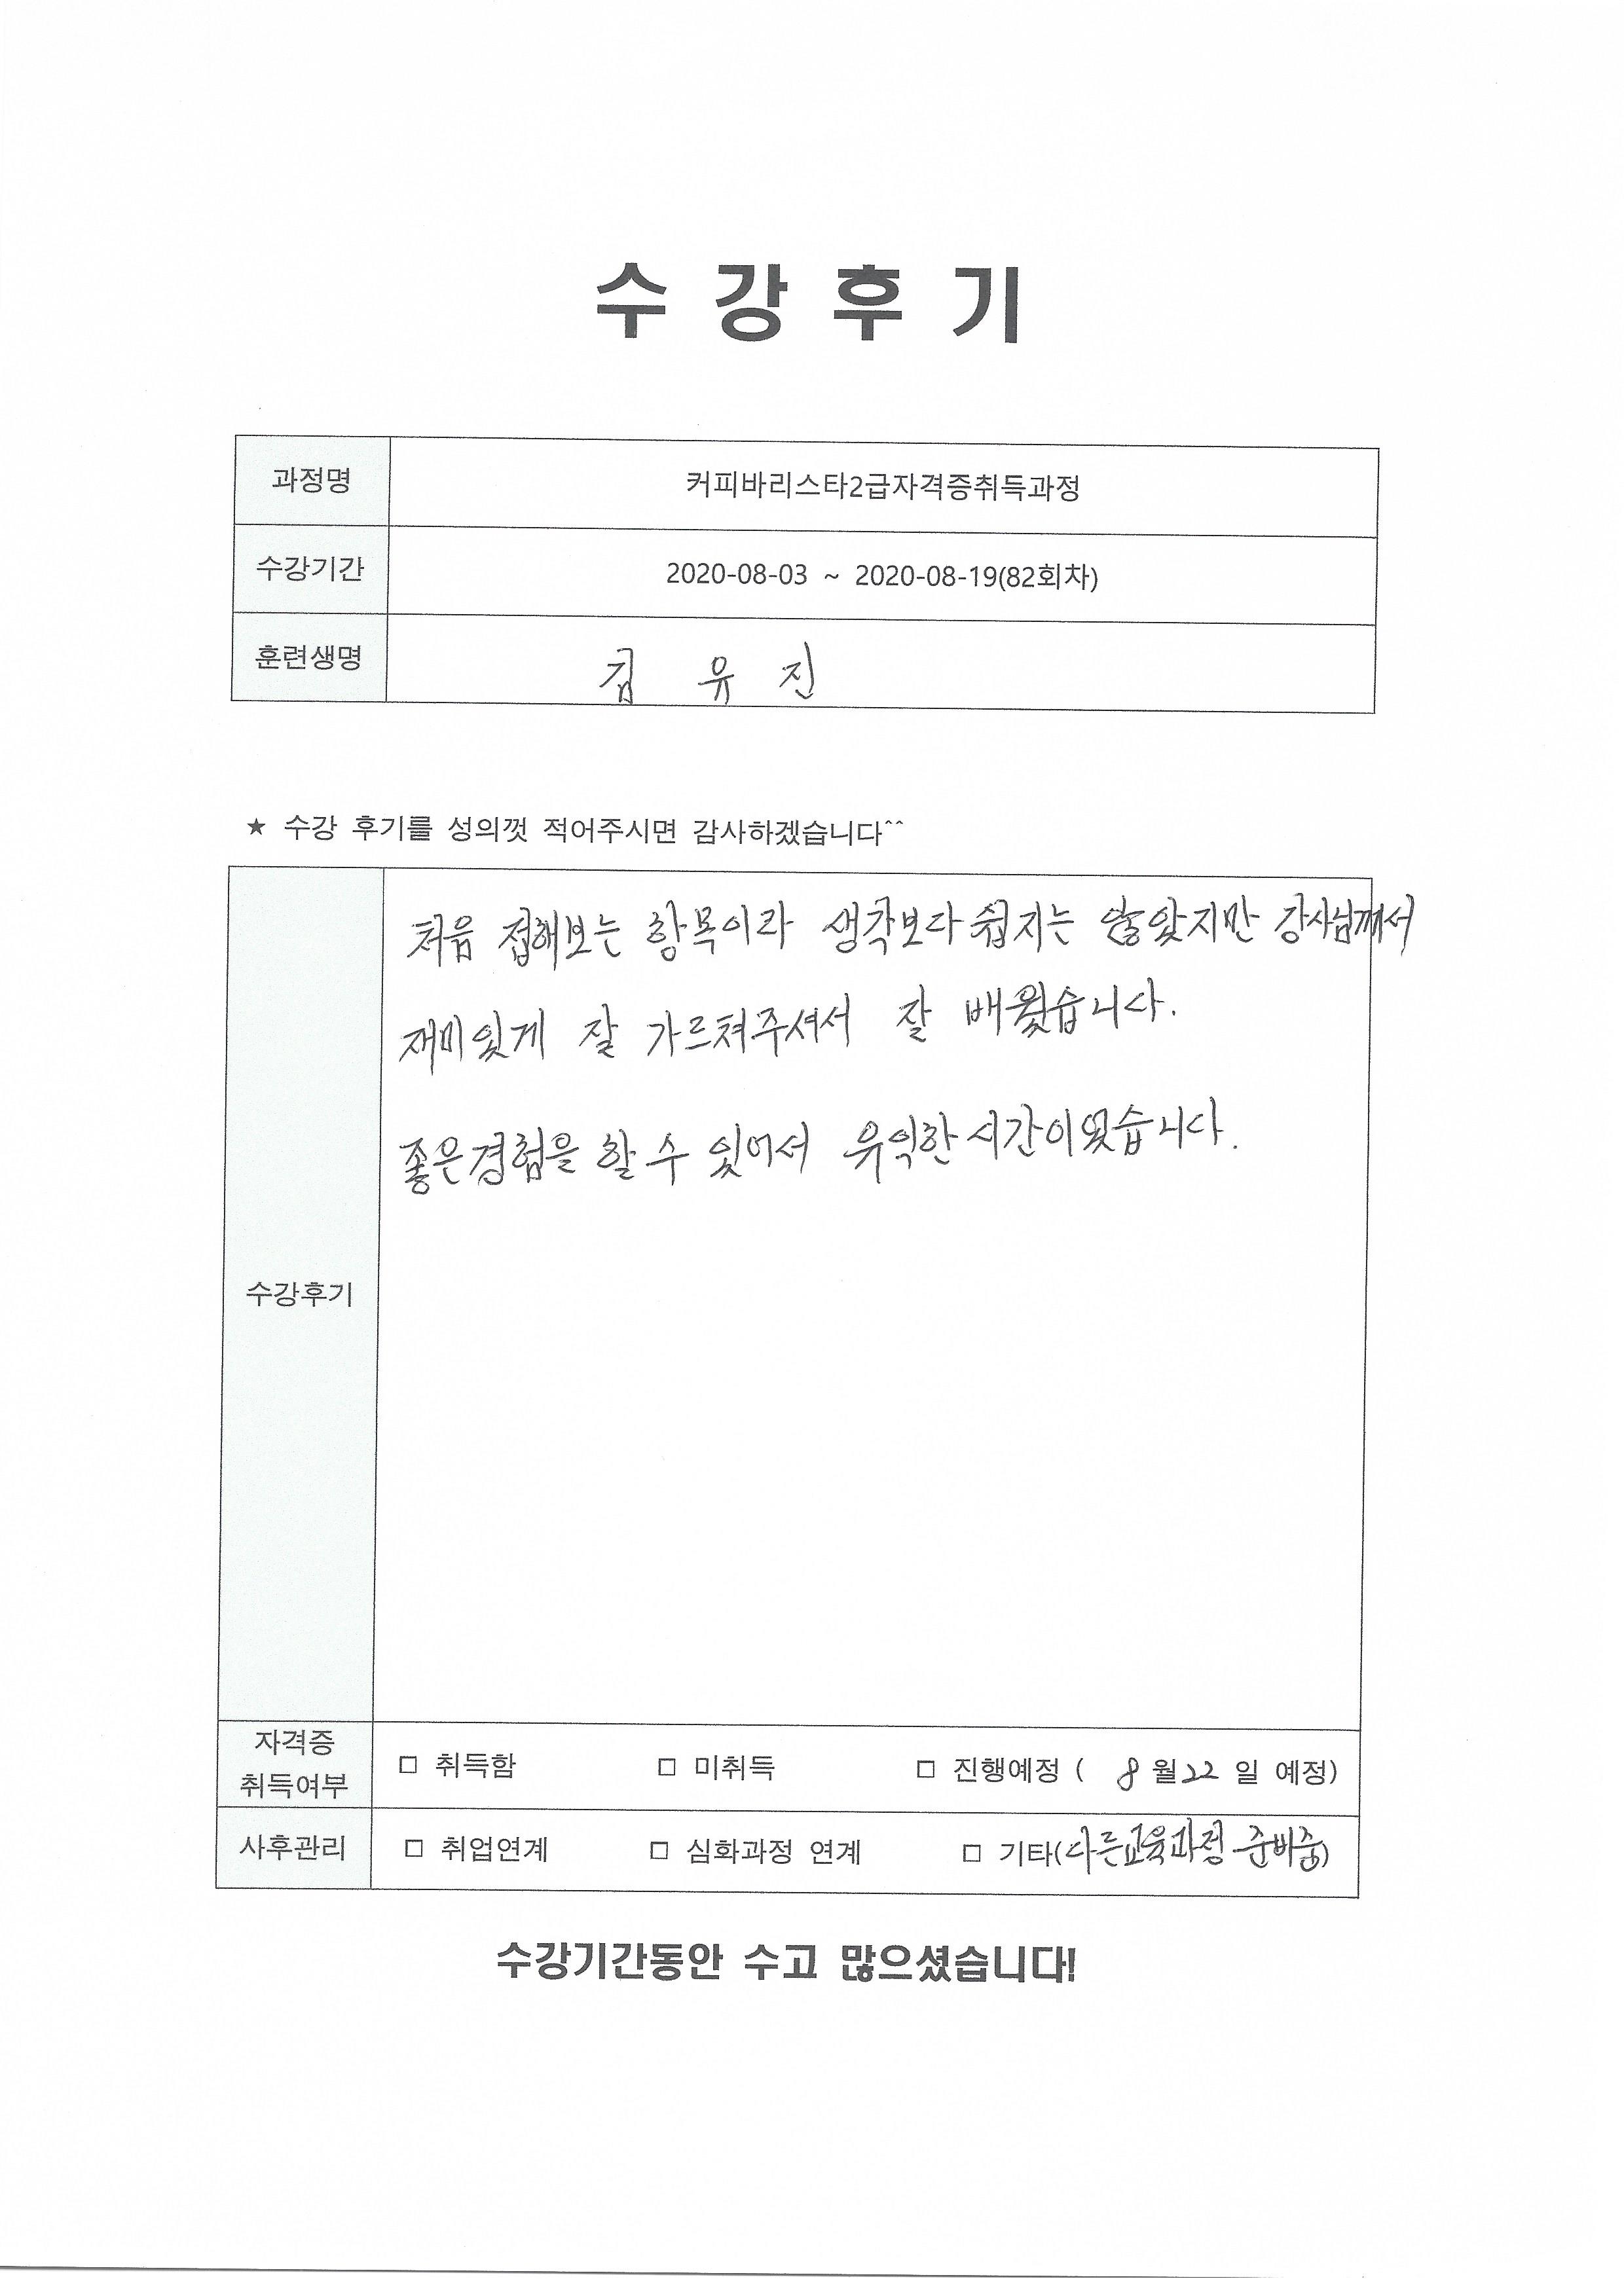 수 강 후 기
과정명 커피바리스타2급자격증취득과정
수강기간 2020-08-03 ~ 2020-08-19(82회차)
훈련생명 김 유 진
★ 수강 후기를 성의껏 적어주시면 감사하겠습니다^^
처음 접해보는 항목이라 생각보다 쉽지는 않았지만 강사님께서
재미있게 잘 가르쳐주셔서 잘 배웠습니다.
좋은경험을 할 수 있어서 유익한 시간이였습니다.
수강후기
자격증
취득여부
□ 취득함 □ 미취득 □ 진행예정 ( 8 월 22 일 예정)
사후관리 □ 취업연계 □ 심화과정 연계 □ 기타(다른교육과정 준비중)
수강기간동안 수고 많으셨습니다!